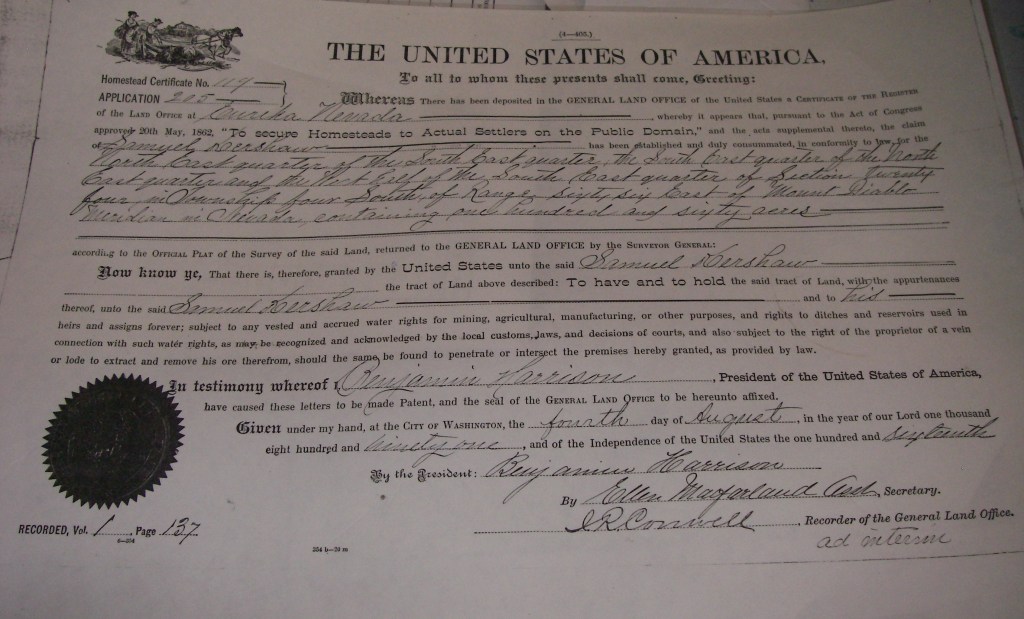 (4—405.)
THE UNITED STATES OF AMERICA,
To all to whom these presents shall come, Greeting:
Homestead Certificate No. 119
APPLICATION 205
Whereas There has been deposited in the GENERAL LAND OFFICE of the United States a CERTIFICATE OF THE REGISTER
OF THE LAND OFFICE AT Eureka Nevada, whereby it appears that, pursuant to the Act of Congress
approved 20th May, 1862, "To secure Homesteads to Actual Settlers on the Public Domain," and the acts supplemental thereto, the claim
of Samuel Kershaw has been established and duly consummated, in conformity to law, for the
North East quarter of the South East quarter, the South East quarter of the North
East quarter and the West half of the South East quarter of Section Twenty
four in Township four South, of Range Sixty six East of Mount Diablo
Meridian in Nevada, containing one hundred and sixty acres
according to the OFFICIAL PLAT of the Survey of the said Land, returned to the GENERAL LAND OFFICE by the SURVEYOR GENERAL:
Now know ye, That there is, therefore, granted by the United States unto the said Samuel Kershaw
the tract of Land above described: To have and to hold the said tract of Land, with the appurtenances
thereof, unto the said Samuel Kershaw and to his
heirs and assigns forever; subject to any vested and accrued water rights for mining, agricultural, manufacturing, or other purposes, and rights to ditches and reservoirs used in
connection with such water rights, as may be recognized and acknowledged by the local customs, laws, and decisions of courts, and also subject to the right of the proprietor of a vein
or lode to extract and remove his ore therefrom, should the same be found to penetrate or intersect the premises hereby granted, as provided by law.
In testimony whereof I, Benjamin Harrison, President of the United States of America,
have caused these letters to be made Patent, and the seal of the GENERAL LAND OFFICE to be hereunto affixed.
Given under my hand, at the CITY OF WASHINGTON, the fourth day of August, in the year of our Lord one thousand
eight hundred and ninety one, and of the Independence of the United States the one hundred and sixteenth
By the President: Benjamin Harrison
By Ellen Macfarland Asst. Secretary.
I R Conwell, Recorder of the General Land Office.
ad interim
RECORDED, Vol. 1, Page 137
6—234